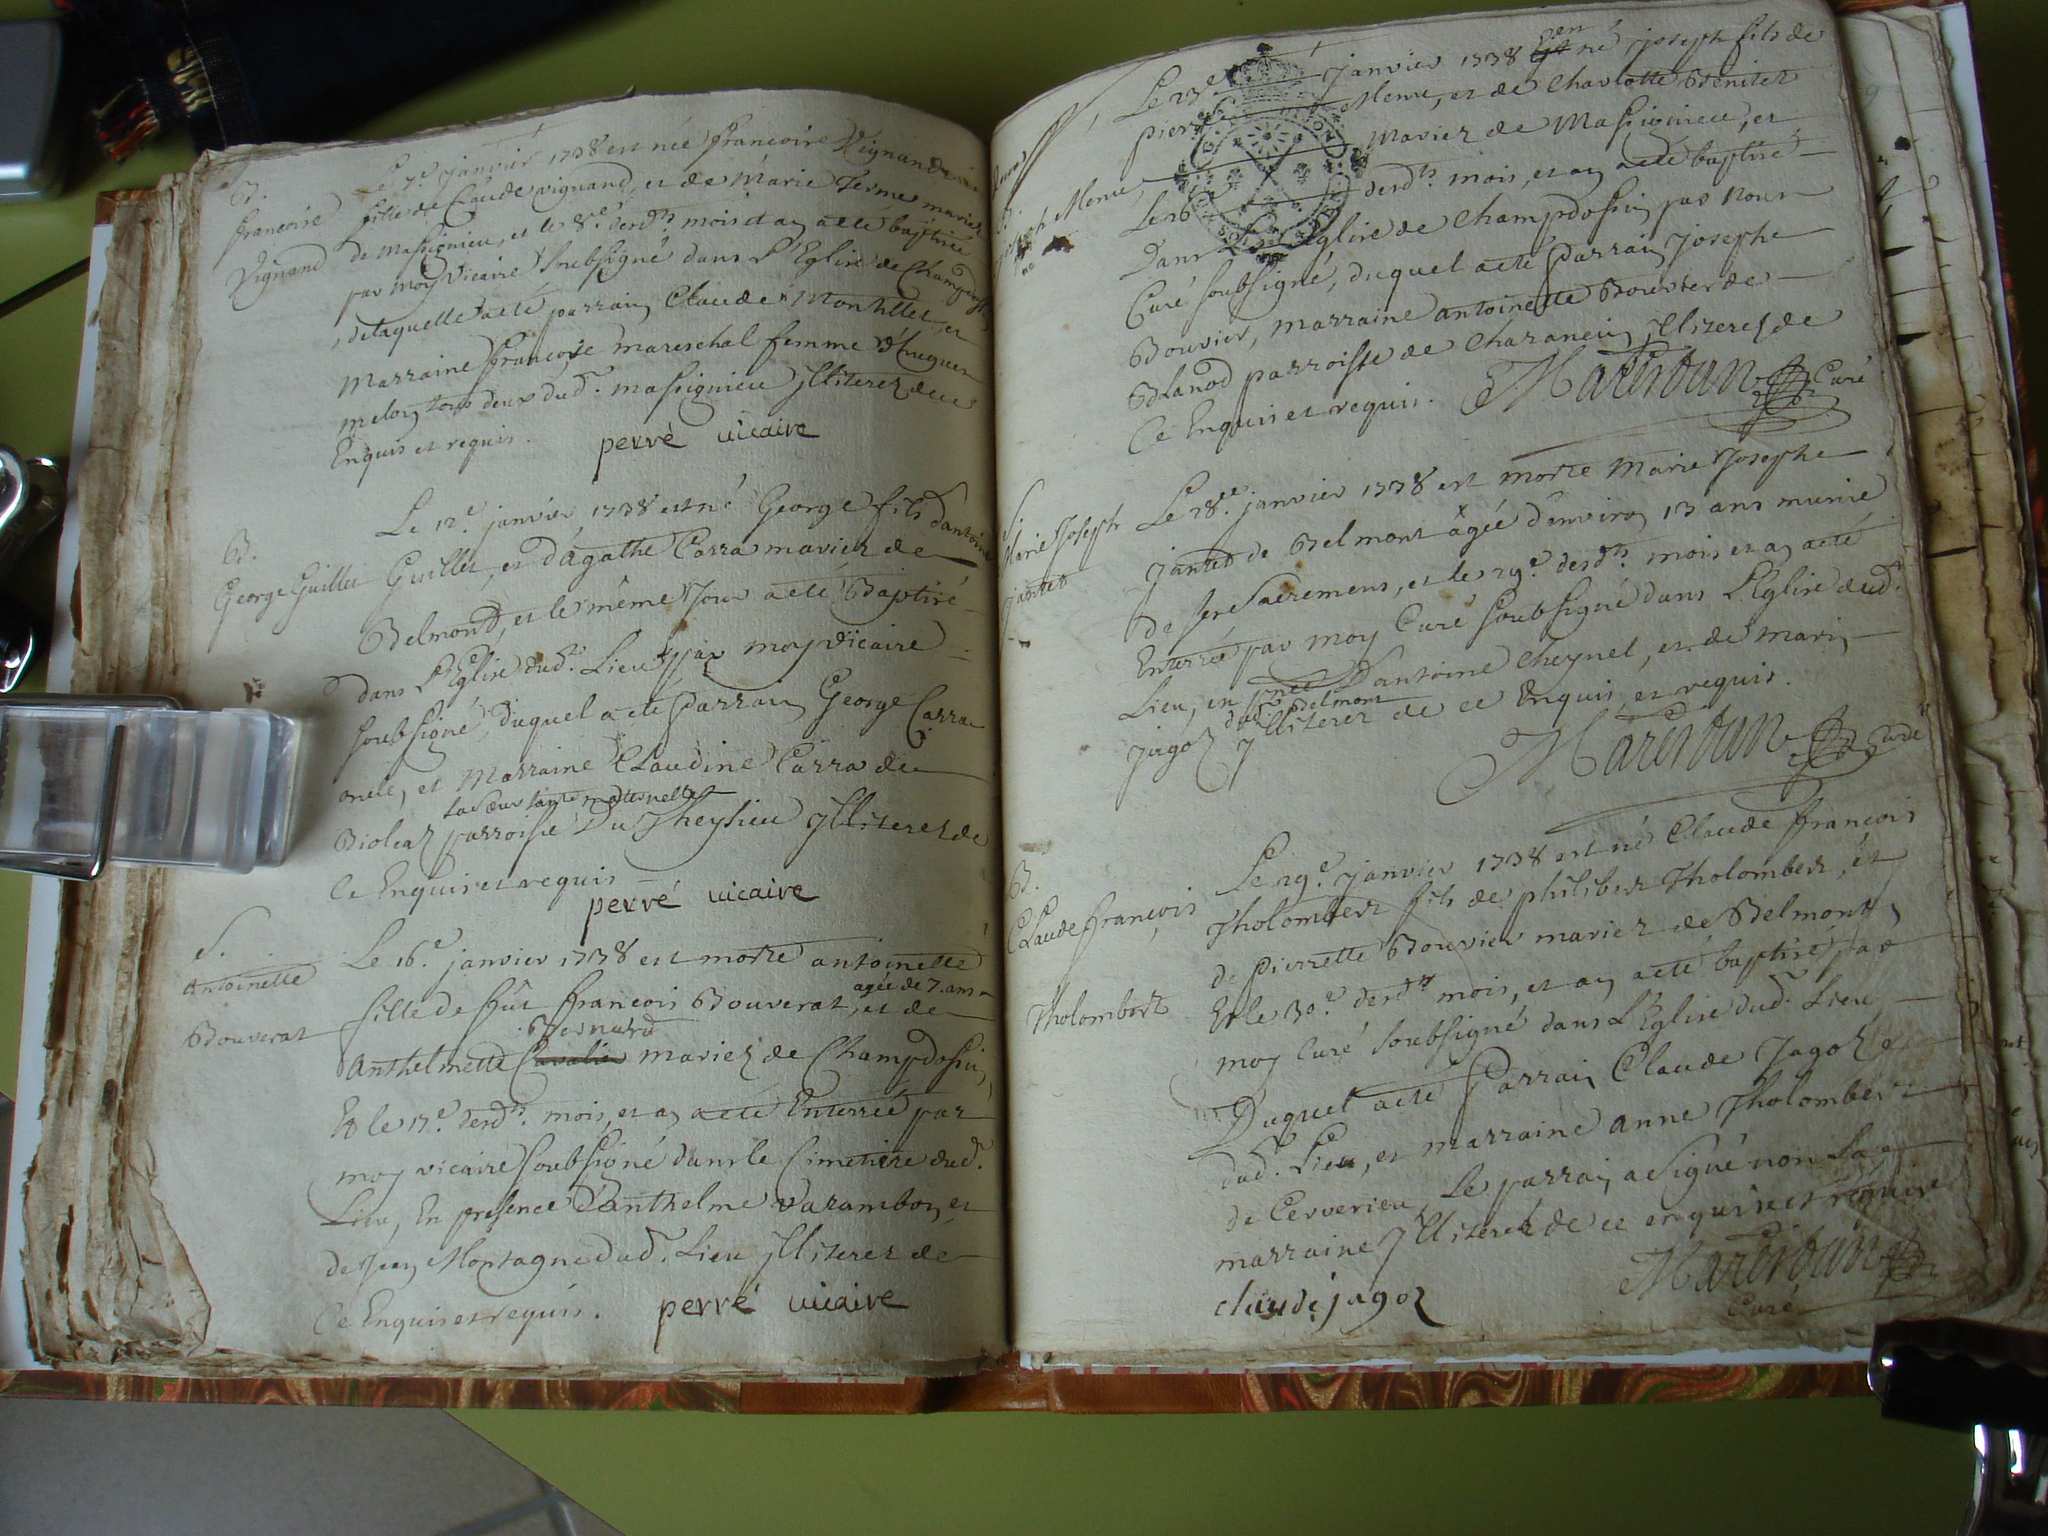 B.
françoise
Vignand
Le 7e. janvier 1738 est née françoise Vignand
fille de Claude vignand, et de Marie ferme mariez
de massignieu, et le 8e. desdts mois et an a eté baptisée
par moy Vicaire soubsigné dans L'Eglise de Champdossin
, de laquelle a eté parrain Claude Montillet, et
Marraine françoise mareschal femme d'huguen
melon tous deux dud. massignieu jllisterez de
Enquis et requis. perré vicaire
B.
George Guillet
Le 12e. janvier 1738 est né George fils d'antoine
Guillet, et d'agathe Carra mariez de
Belmond, et le même Jour a eté Baptisé
dans L'Eglise dud. Lieu par moy vicaire
soubsigné, duquel a eté Parrain George Carra
oncle, et Marraine Claudine Carra de
sa soeur tante maternelle
Bioleaz parroisse Du Theysieu jllisterez de
Ce Enquis et requis
perré vicaire
S.
antoinette
Bouverat
Le 16e. janvier 1738 est morte antoinette
agée de 7. ans
fille de fût françois Bouverat, et de
Bernard
anthelmette mariez de Champdossin,
Et le 17e. desdts. mois, et an a eté Enterrée par
moy vicaire soubsigné dans le Cimetière dud.
Lieu, En presence D'anthelme Varambon, et
de Jean Montagne dud. Lieu jllisterez de
Ce Enquis et requis. perré vicaire
B.
joseph Menu
Le 23e janvier 1738 est né joseph fils de
pierre Menu, et de Charlotte Beniter
Mariez de Massignieu, et
Le 26 desdts mois, et an a eté baptisé
Dans L'Eglise de Champdossin par Nous
Curé soubsigné, duquel a eté Parrain Josephe
Bouvier, marraine antoinette Bouvier de
Blanod parroisse de Chazanein jllisterez de
Ce Enquis et requis. Marestan Curé
S.
Marie Joseph
jantet
Le 28ee. janvier 1738 est morte Marie Josephe
Jantet de Belmont âgée d'environ 13 ans munie
de ses Sacremens, et le 29e. desdts mois et an a eté
Enterrée par moy Curé soubsigné dans L'Eglise dud.
Lieu, en pnce D'antoine Cheynel, et de Marin
dud. Belmont
jagoz jllisterez de ce Enquis et requis.
Marestan Curé
B.
Claude françois
Tholombert
Le 29e. janvier 1738 est né Claude françois
Tholombert fils de philibert Tholombert, et
de pierrette Bouvier mariez de Belmont,
Et le 30e. desdts mois, et an a eté baptisé par
moy Curé soubsigné dans L'Eglise dud. Lieu
Duquel a eté Parrain Claude Jagoz
dud. Lieu, et marraine anne Tholombert
de Cerverieu, Le parrain a signé non La
marraine jllisterée de ce enquise et requise
claude jagoz
Marestan
Curé